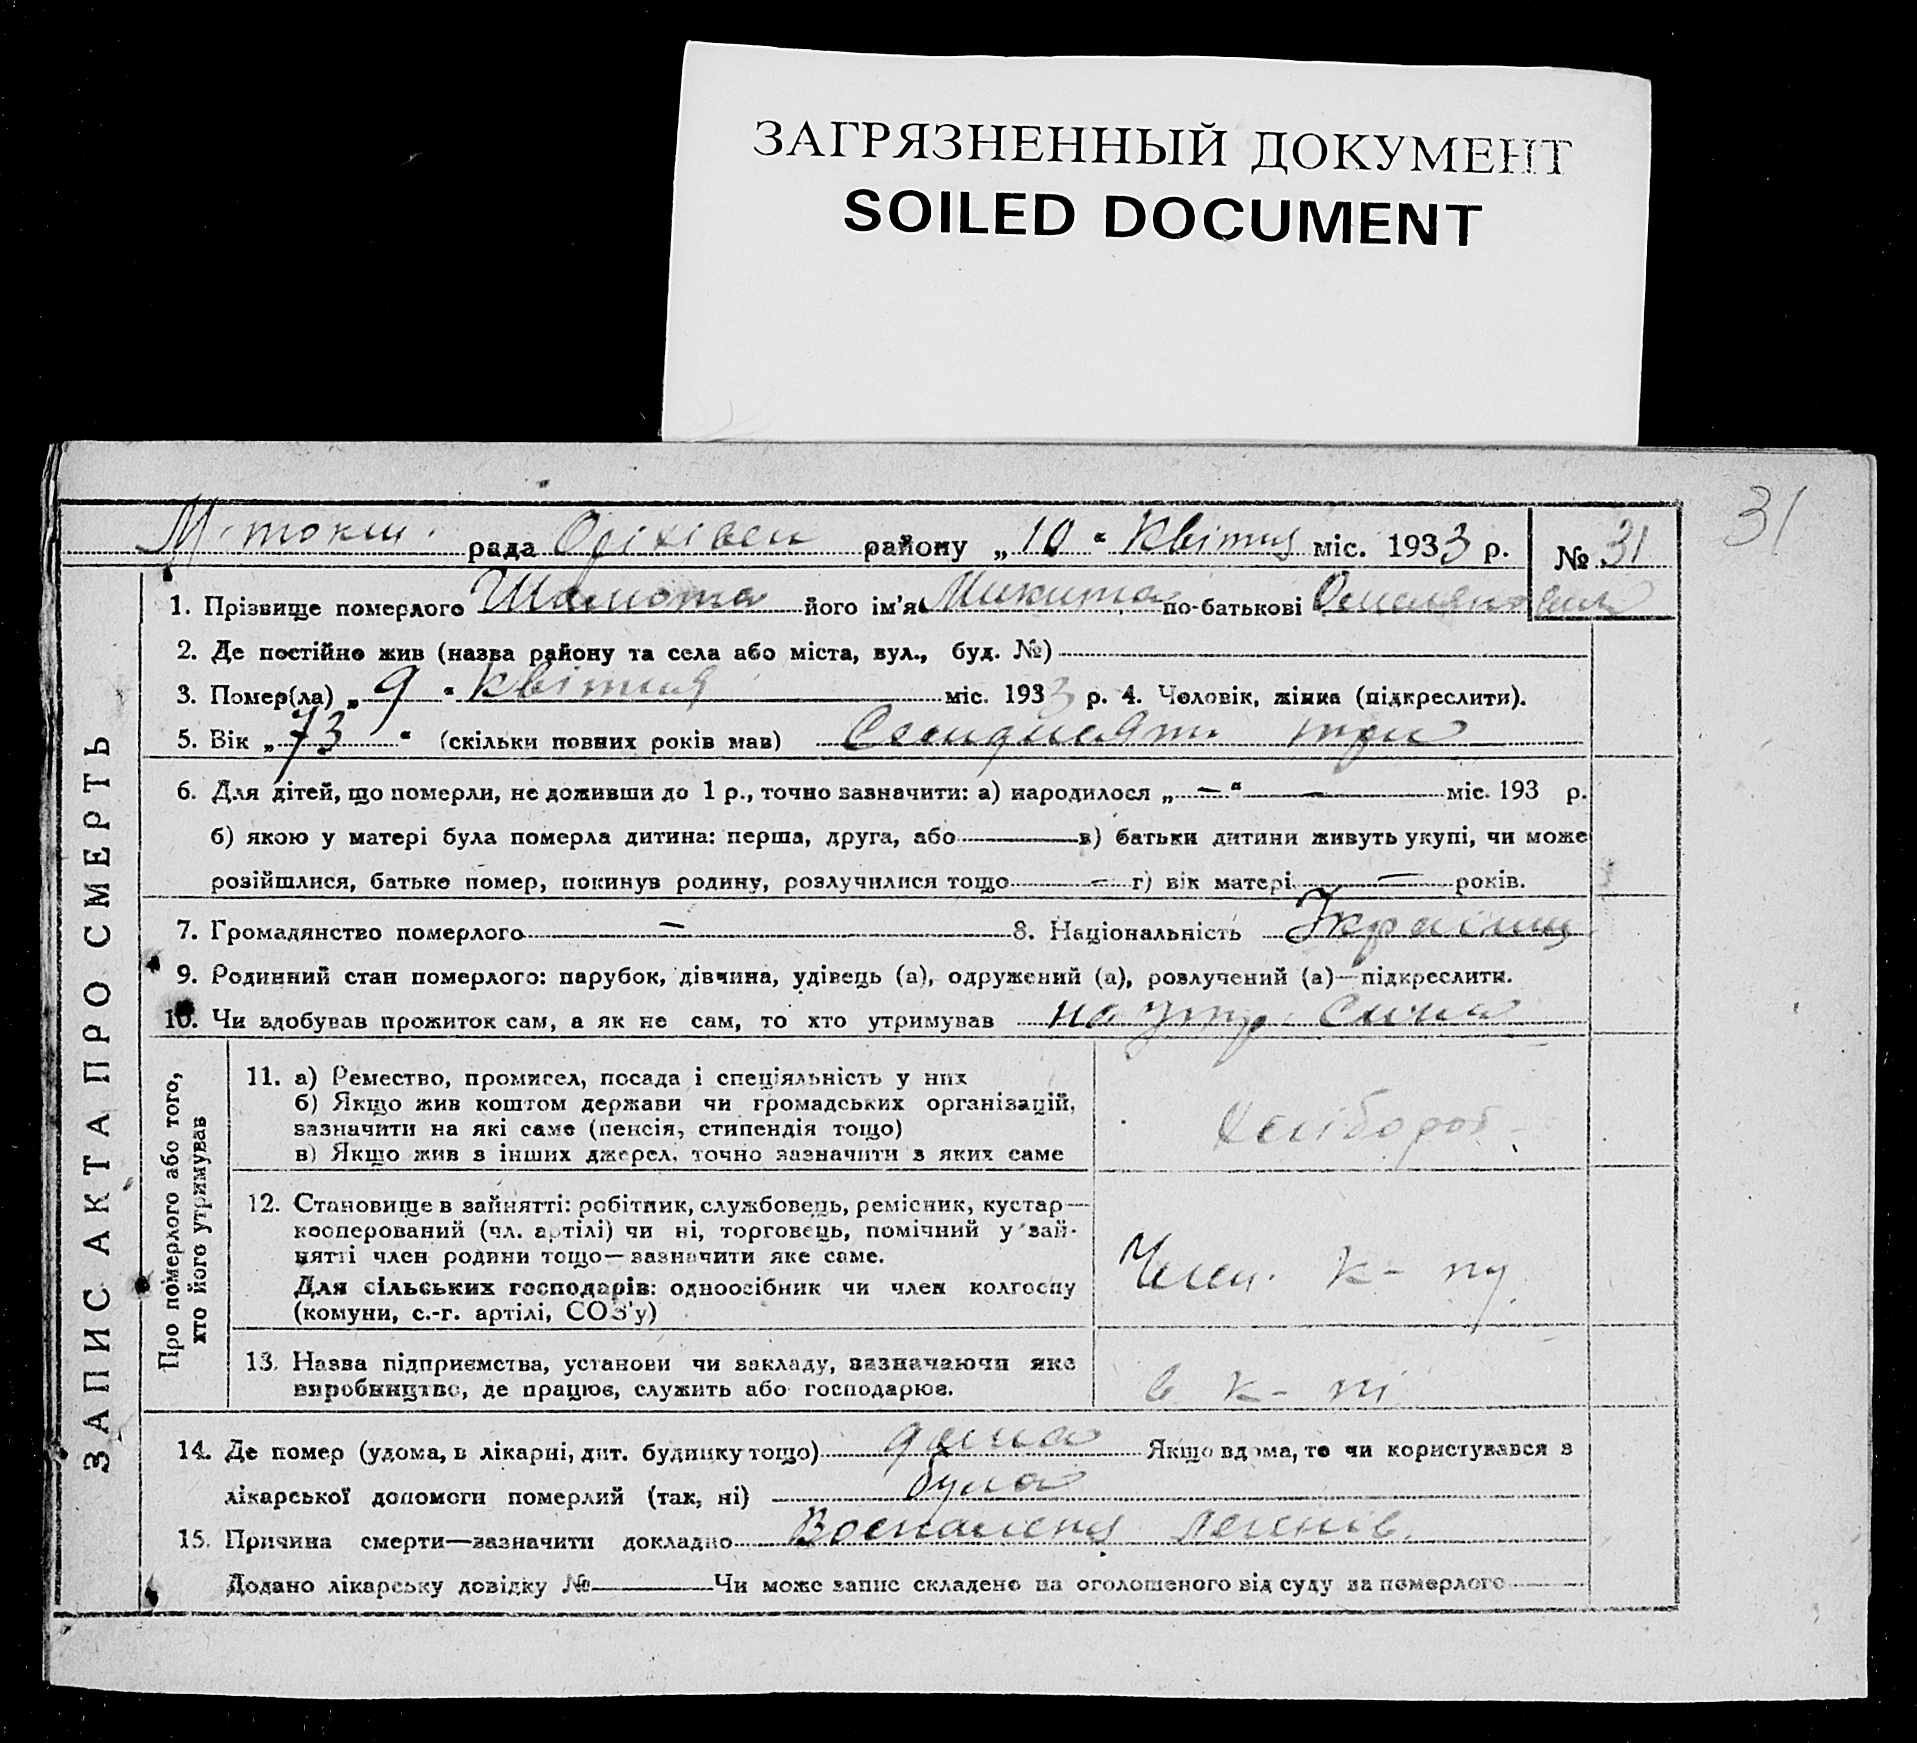 ЗАГРЯЗНЕННЫЙ ДОКУМЕНТ
SOILED DOCUMENT
31
М-токм. рада Оріхівск району „10“ Квітня міс. 1933 р. № 31
1. Прізвище померлого Шамота його ім'я Микита по-батькові Омелянович
2. Де постійно жив (назва району та села або міста, вул., буд. №)
3. Помер(ла) „9“ Квітня міс. 1933 р. 4. Чоловік, жінка (підкреслити).
5. Вік „73“ (скільки повних років мав) Семидисяти три
6. Для дітей, що померли, не доживши до 1 р., точно зазначити: а) народилося „—“ — міс. 193 р.
б) якою у матері була померла дитина: перша, друга, або — в) батьки дитини живуть укупі, чи може
розійшлися, батько помер, покинув родину, розлучилися тощо — г) вік матері — років.
7. Громадянство померлого — 8. Національність Українц
9. Родинний стан померлого: парубок, дівчина, удівець (а), одружений (а), розлучений (а)—підкреслити.
10. Чи здобував прожиток сам, а як не сам, то хто утримував на утр. Сина
ЗАПИС АКТА ПРО СМЕРТЬ
Про померлого або того,
хто його утримував
11. а) Ремество, промисел, посада і спеціяльність у них
б) Якщо жив коштом держави чи громадських організацій,
зазначити на які саме (пенсія, стипендія тощо)
в) Якщо жив з інших джерел, точно зазначити з яких саме
Хлібороб
12. Становище в зайнятті: робітник, службовець, ремісник, кустар—
кооперований (чл. артілі) чи ні, торговець, помічний у зай-
нятті член родини тощо—зазначити яке саме.
Для сільських господарів: одноосібник чи член колгоспу
(комуни, с.-г. артілі, СОЗ'у)
Член. к-пу
13. Назва підприємства, установи чи закладу, зазначаючи яке
виробництво, де працює, служить або господарює.
в к-пі
14. Де помер (удома, в лікарні, дит. будинку тощо) дома Якщо вдома, то чи користувався з
лікарської допомоги померлий (так, ні) була
15. Причина смерти—зазначити докладно Воспаленя легенів.
Додано лікарську довідку № — Чи може запис складено на оголошеного від суду за померлого